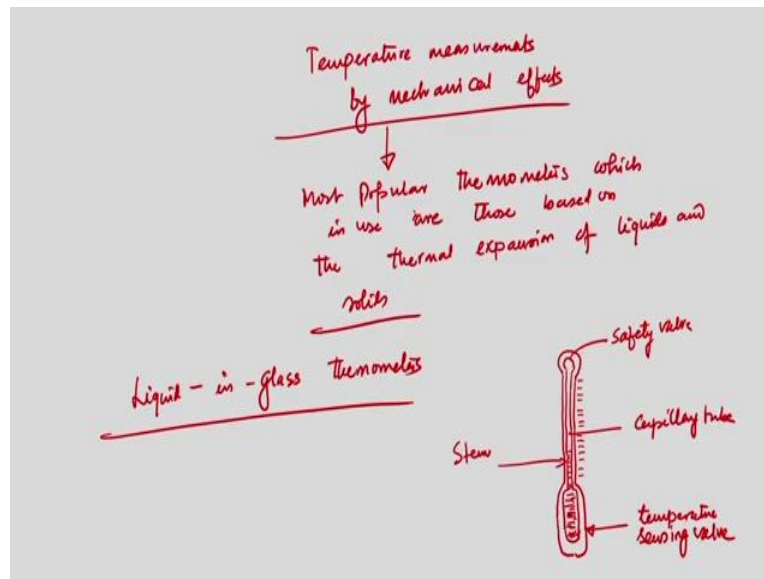 Temperature measuremats
by mechanical effects
Most Popular themometers which
in use are those based on
the thermal expansion of liquids and
solids
Liquid-in-glass themometers
safety valve
capillary tube
Stem
temperature
sensing valve